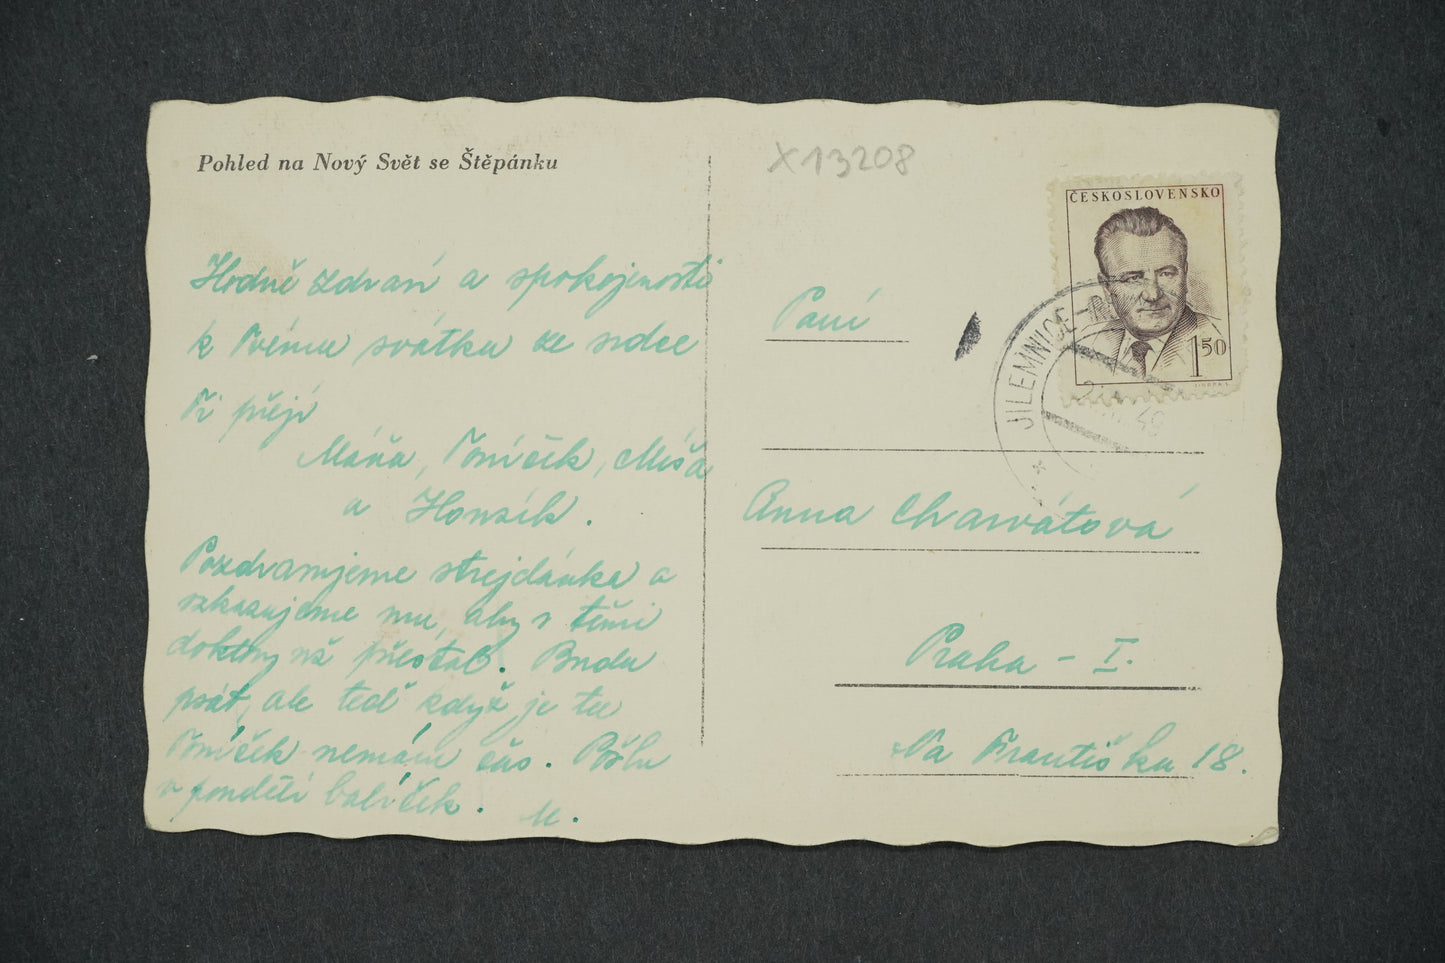 Pohled na Nový Svět se Štěpánku
X13208
ČESKOSLOVENSKO
1 50
JILEMNICE
49
Hodně zdraví a spokojenosti
k Tvému svátku ze srdce
Ti přejí
Máňa, Toníček, Míša
a Honzík.
Pozdravujeme strejdánka a
vzkazujeme mu, aby s těmi
doktory už přestal. Budu
psát, ale teď když je tu
Toníček nemám čas. Pošlu
v pondělí balíček. M.
Paní
Anna Charvátová
Praha - I.
Na Františku 18.